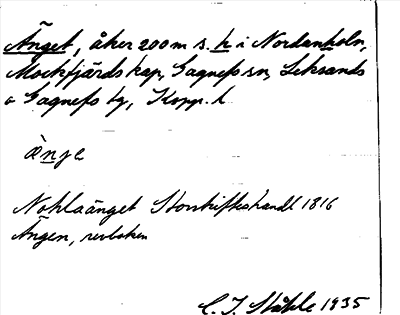 Änget, åker 200 m s. h i Nordanholn,
Mockfjärds kap, Gagnefs sn, Leksands
o Gagnefs tg, Kopp. l.
ænje
Nohlaänget Storskifteshandl 1816
Ängen, revboken
C. I. Ståhle 1935